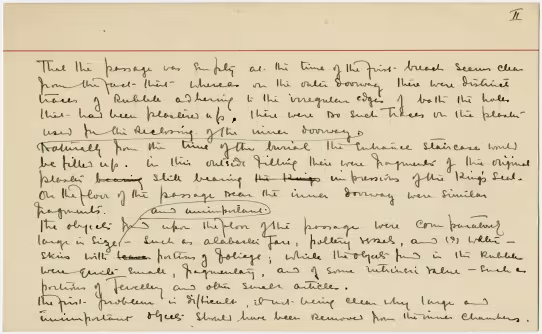 II
That the passage was empty at the time of the first breach seems clear
from the fact that whereas on the outer doorway there were distinct
traces of rubble adhering to the irregular edges of both the holes
that had been plastered up, there were no such traces on the plaster
used for the reclosing of the inner doorway.
Naturally from the time of the burial the Entrance Staircase would
be filled up. In this outside filling there were fragments of the original
plaster bearing still bearing the Kings impressions of the King's Seal.
On the floor of the passage near the inner doorway were similar
fragments.
and unimportant
The objects found upon the floor of the passage were comparatively
large in size, - such as alabaster jars, pottery vessels, and (?) water-
skins with portions of foliage; while the objects found in the rubble
were quite small, fragmentary, and of some intrinsic value - such as
portions of jewellery and other small articles.
The first problem is difficult, it not being clear why large and
unimportant objects should have been removed from the inner chambers.